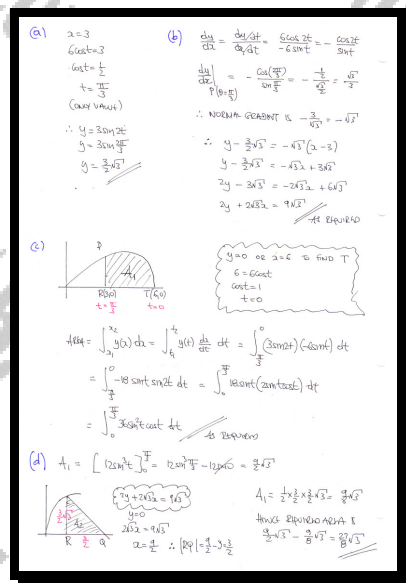 (a) x=3
6cost=3
cost=1/2
t=π/3
(ONLY VALUE)
∴ y=3sin2t
y=3sin 2π/3
y=3/2√3
(b) dy/dx = (dy/dt)/(dx/dt) = 6cos2t/-6sint = - cos2t/sint
dy/dx |P(θ=π/3) = - cos(2π/3)/sin π/3 = - (-1/2)/(√3/2) = √3/3
∴ NORMAL GRADIENT IS -3/√3 = -√3
∴ y-3/2√3 = -√3(x-3)
y-3/2√3 = -√3x+3√3
2y-3√3 = -2√3x+6√3
2y+2√3x = 9√3
AS REQUIRED
(c) P
A₁
R(3,0) T(6,0)
t=π/3 t=0
y=0 OR x=6 TO FIND T
6=6cost
cost=1
t=0
AREA = ∫x₁^x₂ y(x) dx = ∫t₁^t₂ y(t) dx/dt dt = ∫π/3^0 (3sin2t)(-6sint) dt
= ∫π/3^0 -18 sint sin2t dt = ∫0^π/3 18sint(2sintcost) dt
= ∫0^π/3 36sin²t cost dt
AS REQUIRED
(d) A₁ = [12sin³t]0^π/3 = 12sin³π/3 - 12sin³0 = 9/2√3
P
3/2√3
A₂
R 3/2 Q
2y+2√3x=9√3
y=0
2√3x=9√3
x=9/2 ∴ |RQ|=9/2-3=3/2
A₁=1/2×3/2×3/2√3=9/8√3
HENCE REQUIRED AREA IS
9/2√3-9/8√3=27/8√3